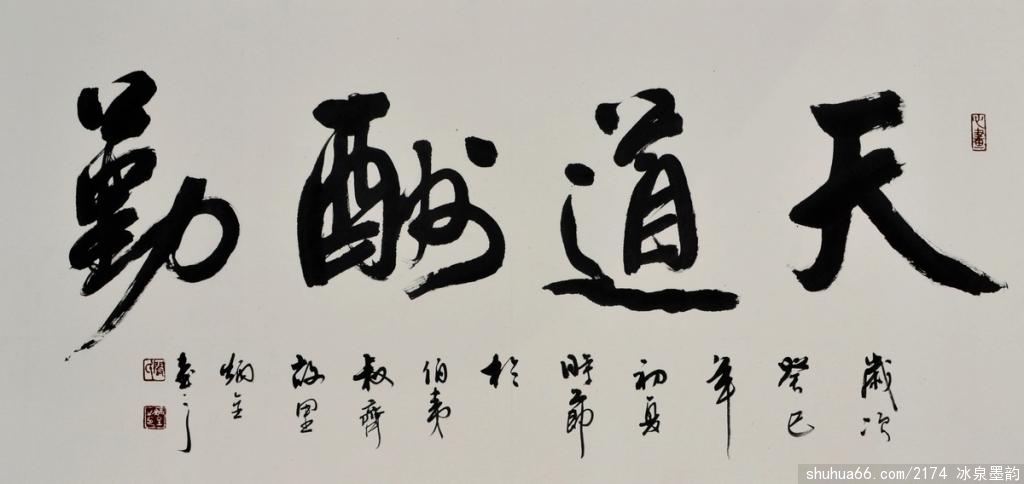 天道酬勤
歲次
癸巳
年
初夏
時節
於
伯夷
叔齊
故里
炳全
書之
心畫
shuhua66.com/2174 冰泉墨韵